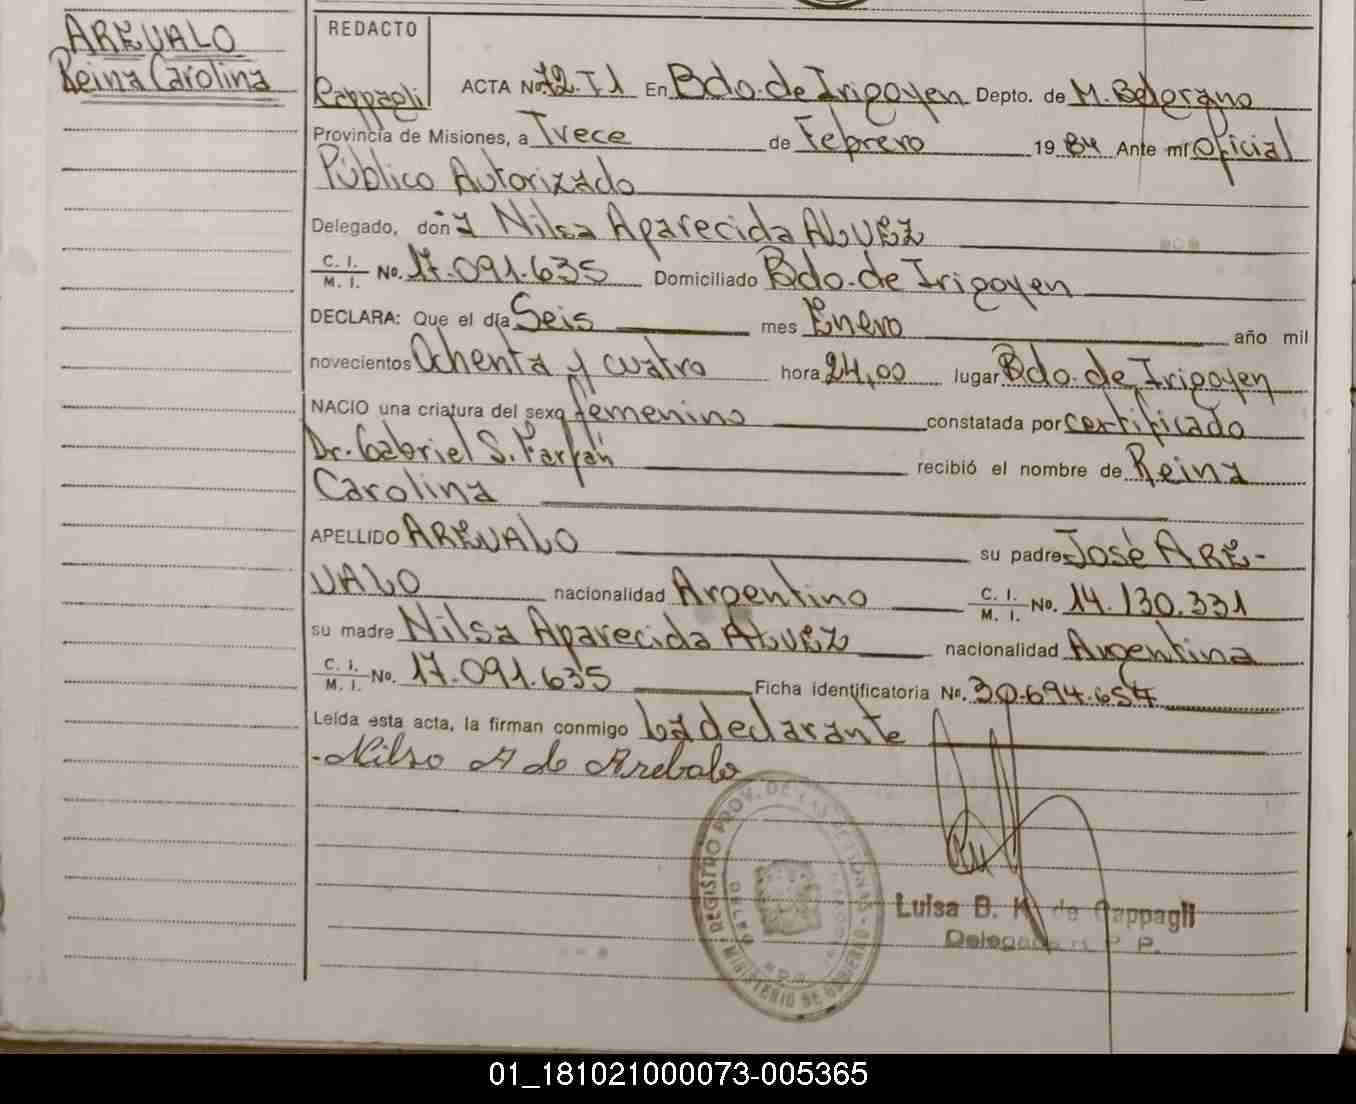 AREVALO
Reina Carolina
REDACTO
Cappagli
ACTA No. 72. T1 En Bdo. de Irigoyen Depto. de M. Belgrano
Provincia de Misiones, a Trece de Febrero 19 84 Ante mí Oficial
Público Autorizado
Delegado, doña Nilsa Aparecida ALVEZ
C. I. / M. I. No. 17.091.635 Domiciliado Bdo. de Irigoyen
DECLARA: Que el día Seis mes Enero año mil
novecientos Ochenta y cuatro hora 24,00 lugar Bdo. de Irigoyen
NACIO una criatura del sexo femenino constatada por certificado
Dr. Gabriel S. Farfán recibió el nombre de Reina
Carolina
APELLIDO AREVALO su padre José ARE-
VALO nacionalidad Argentino C. I. / M. I. No. 14.130.331
su madre Nilsa Aparecida ALVEZ nacionalidad Argentina
C. I. / M. I. No. 17.091.635 Ficha identificatoria No. 30.694.654
Leída esta acta, la firman conmigo La declarante
Nilso A de Arebalo
REGISTRO PROV. DE LAS PERSONAS
MINISTERIO DE GOBIERNO
Luisa B. K. de Cappagli
Delegada R. P. P.
01_181021000073-005365